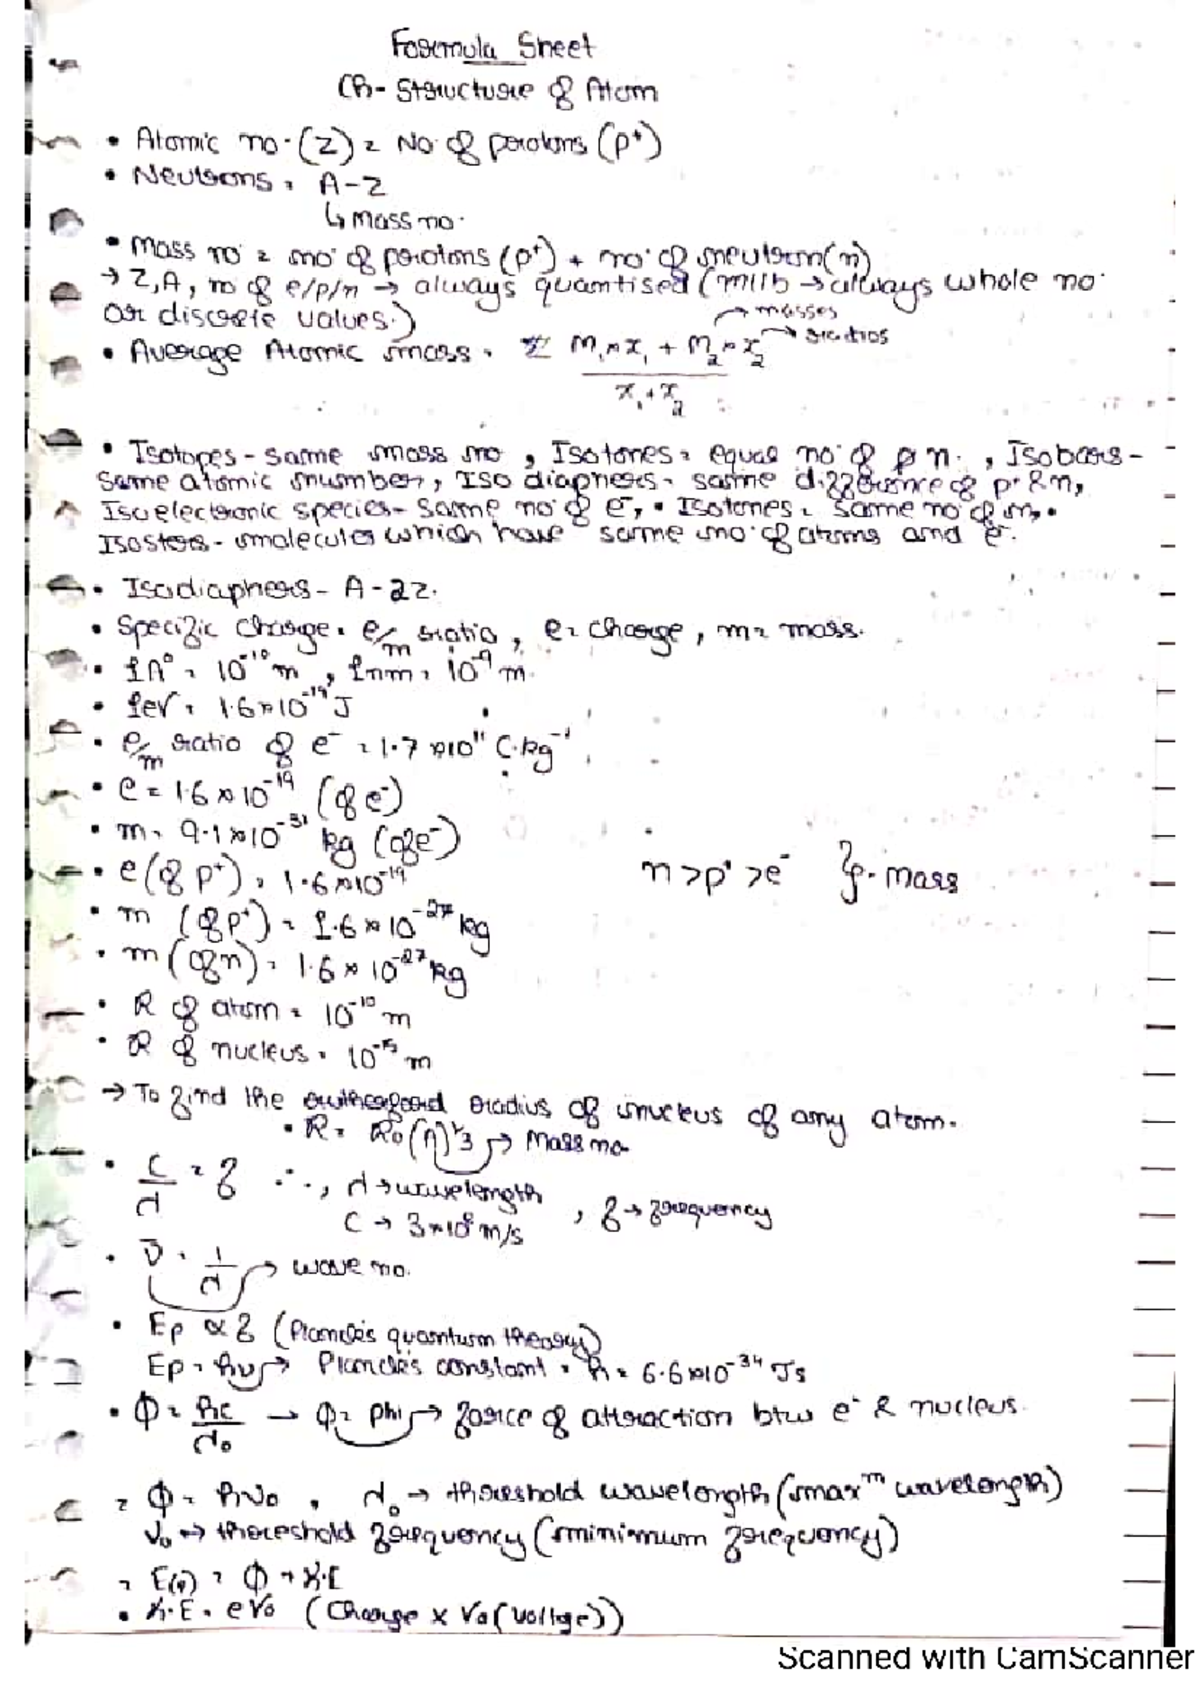 Formula Sheet
Ch- Structure of Atom
• Atomic no.(Z) = No. of protons (p⁺)
• Neutrons = A-Z
↳ Mass no.
• Mass no = no. of protons (p⁺) + no. of neutron(n)
→ Z, A, no of e/p/n → always quantised (mllb → always whole no.
or discrete values.)
→ masses
• Average Atomic mass = Σ M₁×x₁ + M₂×x₂ → ratios
x₁+x₂
• Isotopes - same mass no, Isotones = equal no of n., Isobars -
Same atomic number, Iso diaphers - same difference of p⁺ & n,
Isoelectronic species - same no of e⁻, • Isotones = same no of n, •
Isosters - molecules which have same no. of atoms and e⁻.
• Isodiaphers - A-2Z.
• Specific charge = e/m ratio, e= charge, m= mass.
• 1A° = 10⁻¹⁰m, 1nm = 10⁻⁹m.
• 1eV = 1.6×10⁻¹⁹J
• e/m ratio of e⁻ = 1.7×10¹¹ C.kg⁻¹
• e = 1.6×10⁻¹⁹ (of e⁻)
• m = 9.1×10⁻³¹ kg (of e⁻)
• e(of p⁺) = 1.6×10⁻¹⁹
n>p⁺>e⁻ }- mass
• m (of p⁺) = 1.6×10⁻²⁷ kg
• m(of n) = 1.6×10⁻²⁷kg
• R of atom = 10⁻¹⁰m
• R of nucleus = 10⁻¹⁵m
→ To find the radius of nucleus of any atom.
• R = R₀(A)^1/3 → Mass no
• c/λ = f ∴, λ→wavelength
c → 3×10⁸m/s, f→frequency
• ν̄ = 1/λ → wave no.
• Ep ∝ f (Planck's quantum theory)
Ep = hν → Planck's constant = h = 6.6×10⁻³⁴ Js
• Φ = hc/λ₀ → Φ= phi → force of attraction btw e⁻ & nucleus.
= Φ = hν₀, λ₀ → threshold wavelength (maxᵐ wavelength)
ν₀ → threshold frequency (minimum frequency)
= E(p) = Φ + K.E
• K.E = eV₀ (Charge x V₀(voltage))
Scanned with CamScanner